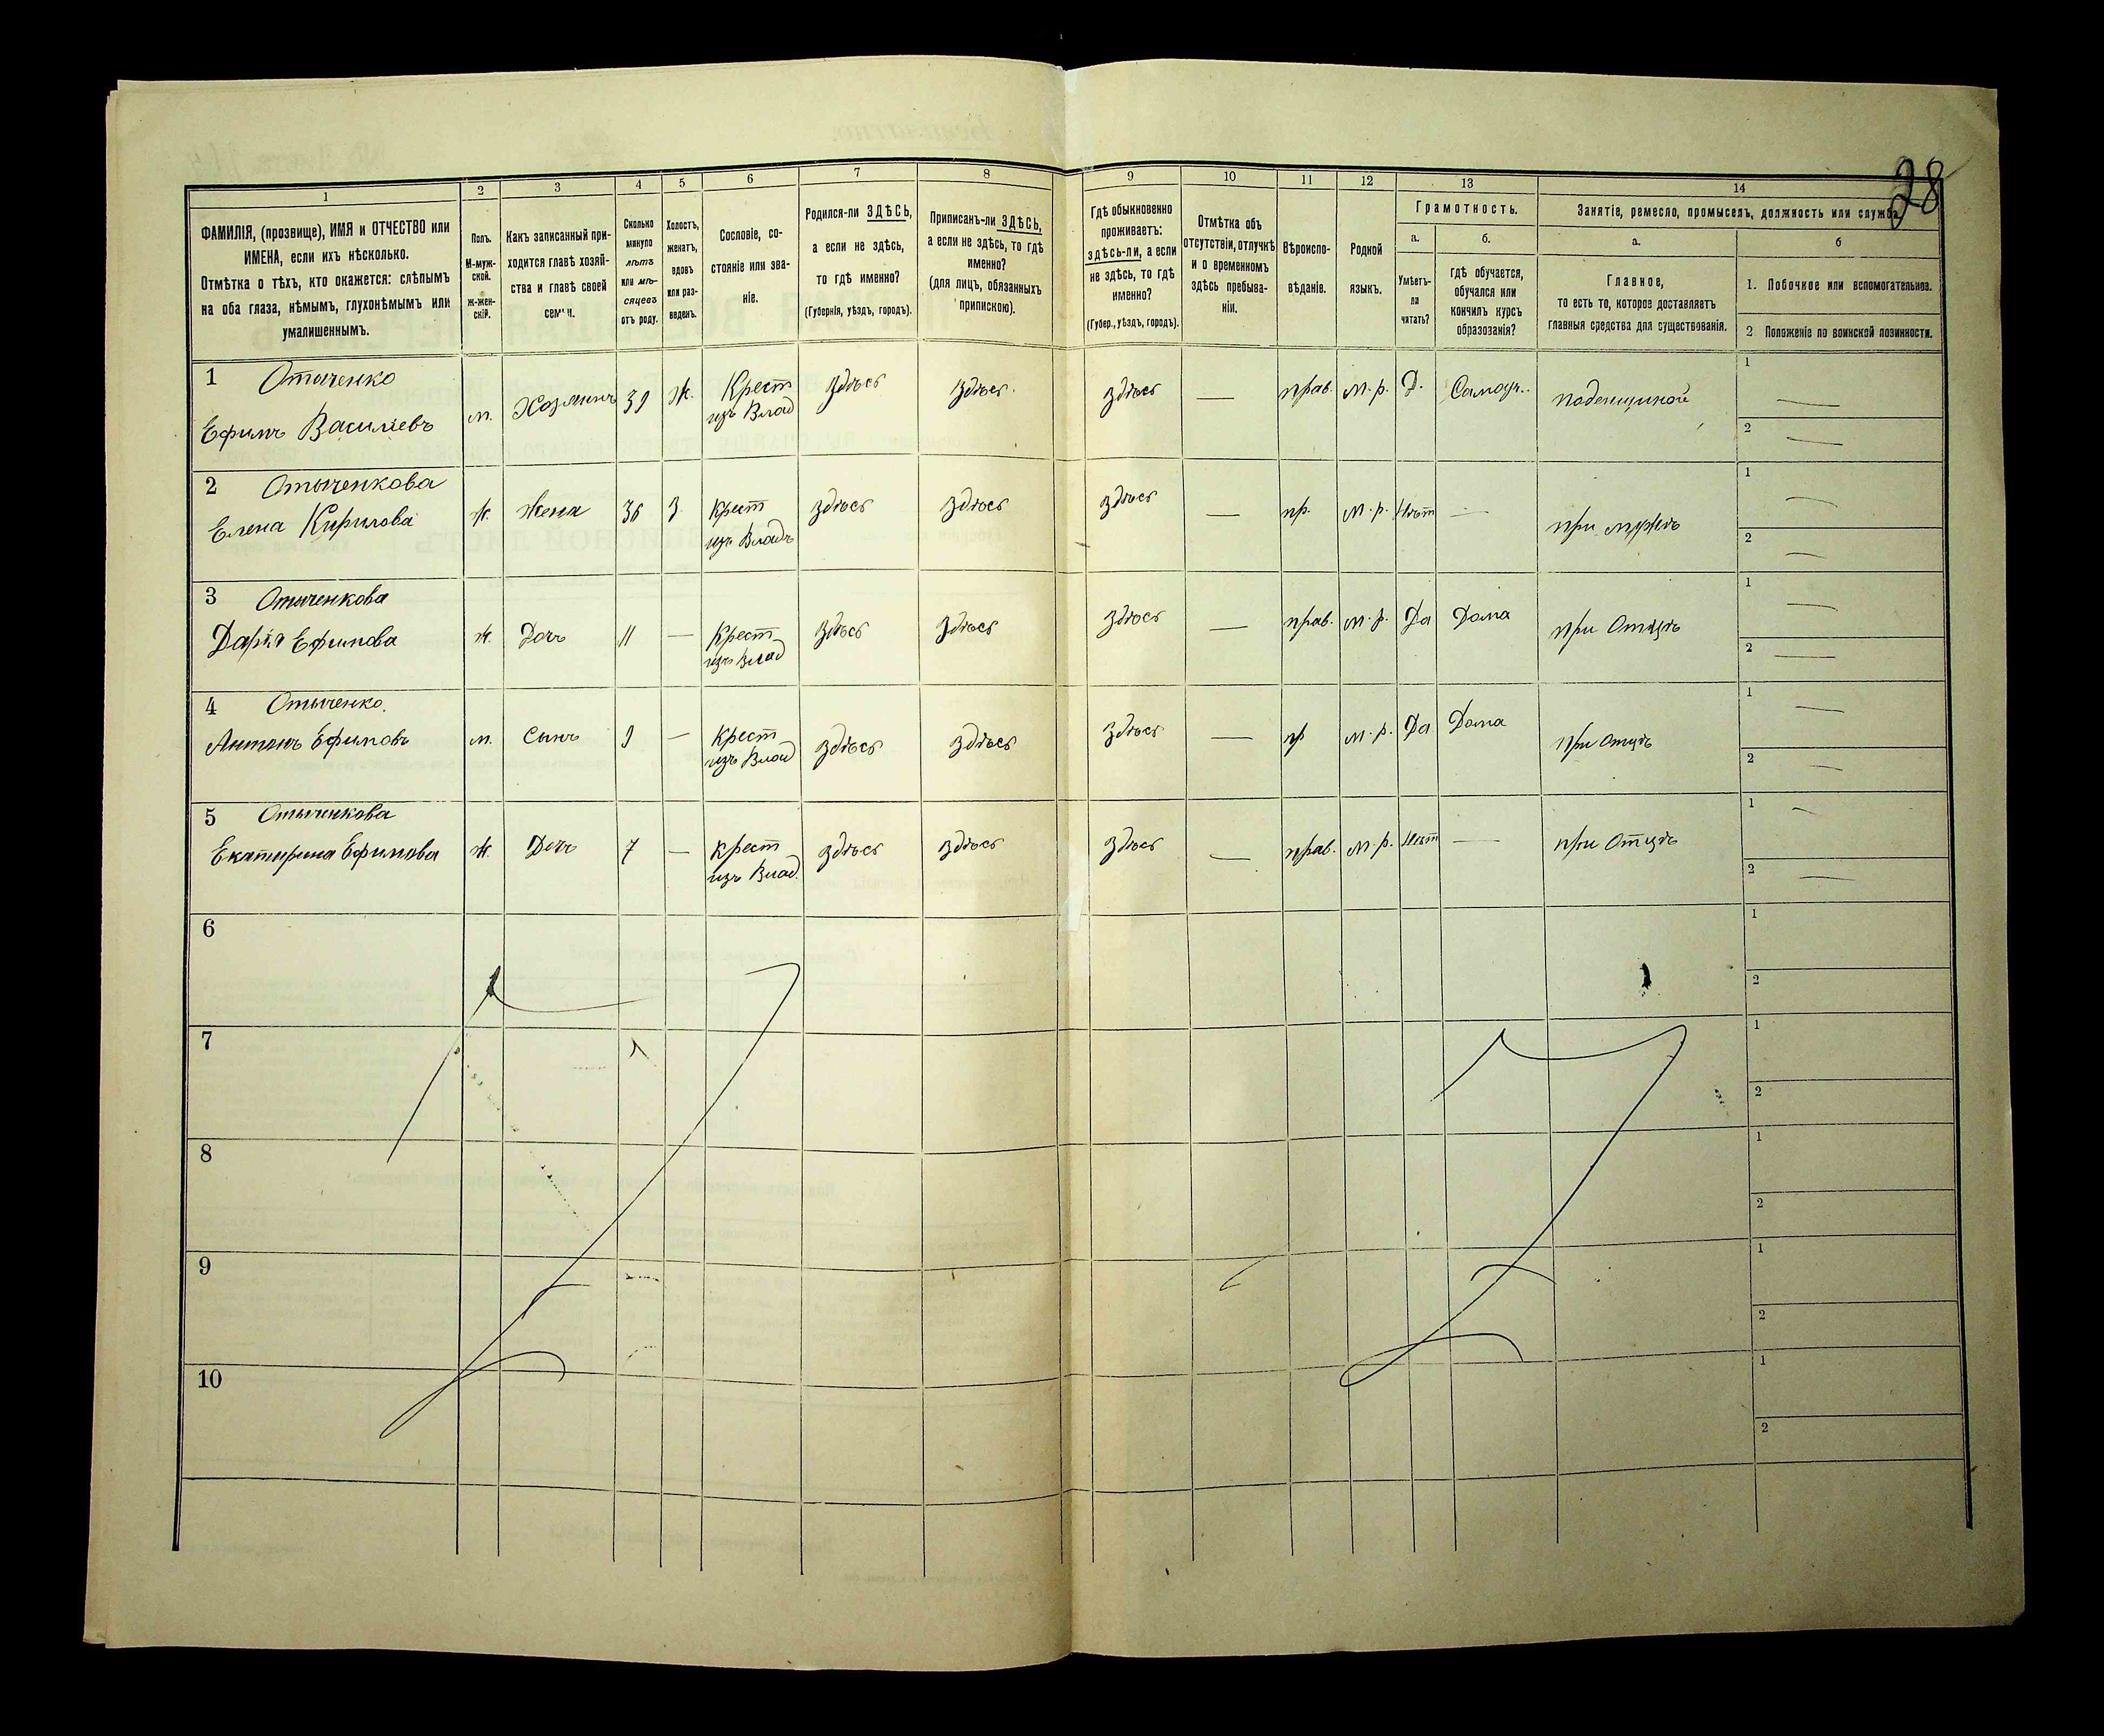 28
1 2 3 4 5 6 7 8 9 10 11 12 13 14
ФАМИЛІЯ, (прозвище), ИМЯ и ОТЧЕСТВО или
ИМЕНА, если ихъ нѣсколько.
Отмѣтка о тѣхъ, кто окажется: слѣпымъ
на оба глаза, нѣмымъ, глухонѣмымъ или
умалишеннымъ.
Полъ.
М-муж-
ской.
Ж-жен-
скій.
Какъ записанный при-
ходится главѣ хозяй-
ства и главѣ своей
семьи.
Сколько
минуло
лѣтъ
или мѣ-
сяцевъ
отъ роду.
Холостъ,
женатъ,
вдовъ
или раз-
веденъ.
Сословіе, со-
стояніе или зва-
ніе.
Родился-ли ЗДѢСЬ,
а если не здѣсь,
то гдѣ именно?
(Губернія, уѣздъ, городъ).
Приписанъ-ли ЗДѢСЬ,
а если не здѣсь, то гдѣ
именно?
(для лицъ, обязанныхъ
припискою).
Гдѣ обыкновенно
проживаетъ:
здѣсь-ли, а если
не здѣсь, то гдѣ
именно?
(Губер., уѣздъ, городъ).
Отмѣтка объ
отсутствіи, отлучкѣ
и о временномъ
здѣсь пребыва-
ніи.
Вѣроиспо-
вѣданіе.
Родной
языкъ.
Грамотность.
а.
Умѣетъ-
ли
читать?
б.
гдѣ обучается,
обучался или
кончилъ курсъ
образованія?
Занятіе, ремесло, промыселъ, должность или служба.
а.
Главное,
то есть то, которое доставляетъ
главныя средства для существованія.
б
1. Побочное или вспомогательное.
2 Положеніе по воинской повинности.
1 Отыченко
Ефимъ Василіевъ м. Хозяинъ 39 Ж. Крест здѣсь здѣсь. здѣсь — прав. м. р. Д. Самоуч. поденщиной 1 —
изъ Влад 2 —
2 Отыченкова
Елена Кирилова ж. жена 36 З. крест здѣсь здѣсь здѣсь — пр. м. р. Нѣт — при мужѣ 1 —
изъ Владъ 2 —
3 Отыченкова
Дарія Ефимова ж. Дочъ 11 — крест здѣсь здѣсь здѣсь — прав. м. р. Да Дома при Отцѣ 1 —
изъ Влад 2 —
4 Отыченко.
Антонъ Ефимовъ м. Сынъ 9 — крест здѣсь здѣсь здѣсь — пр м. р. Да Дома при Отцѣ 1 —
изъ Влад 2 —
5 Отыченкова
Екатирина Ефимова ж. Дочъ 7 — крест здѣсь здѣсь здѣсь — прав. м. р. Нѣт — при Отцѣ 1 —
изъ Влад. 2 —
6 1
2
7 1
2
8 1
2
9 1
2
10 1
2